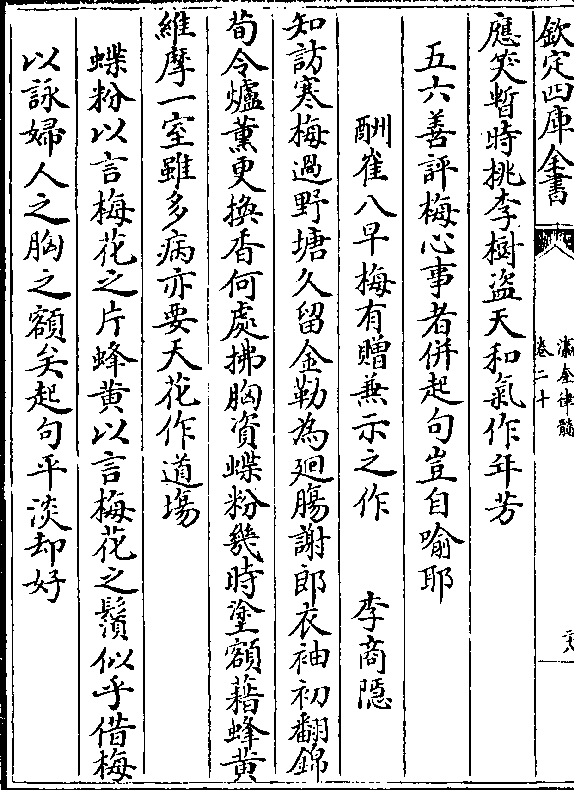 欽定四庫全書
瀛奎律髓
卷二十
應笑暫時桃李樹盜天和氣作年芳
五六善評梅心事者併起句豈自喻耶
酬崔八早梅有贈兼示之作 李商隱
知訪寒梅過野塘久留金勒為廻腸謝郎衣袖初翻錦
荀令爐薰更換香何處拂胸資蝶粉幾時塗額藉蜂黄
維摩一室雖多病亦要天花作道場
蝶粉以言梅花之片蜂黄以言梅花之鬚似乎借梅
以詠婦人之胸之額矣起句平淡却好